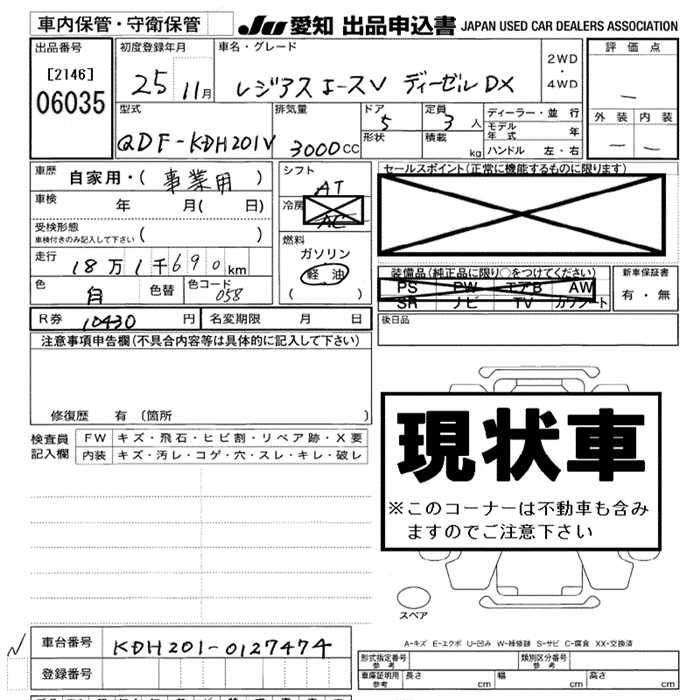 車内保管・守衛保管
JU 愛知 出品申込書 JAPAN USED CAR DEALERS ASSOCIATION
出品番号
[2146]
06035
初度登録年月
25 11月
車名・グレード
レジアスエースV ディーゼル DX
2WD
・
4WD
評価点
―
外装 内装
― ―
型式
QDF-KDH201V
排気量
3000cc
ドア
5
形状
定員
3人
積載
kg
ディーラー・並行
モデル年式 年
ハンドル 左・右
車歴 自家用・( 事業用 )
車検 年 月( 日)
受検形態
車検付きのみ記入して下さい ( )
走行 18万1千690km
色 白 色替 色コード 058
シフト
AT
冷房
AC
燃料
ガソリン
軽油
( )
セールスポイント(正常に機能するものに限ります)
装備品(純正品に限り○をつけてください)
PS PW エアB AW
SR ナビ TV カワシート
新車保証書
有・無
R券 10430 円 名変期限 月 日
後日品
注意事項申告欄(不具合内容等は具体的に記入して下さい)
修復歴 有(箇所 )
検査員記入欄
FW キズ・飛石・ヒビ割・リペア跡・X要
内装 キズ・汚レ・コゲ・穴・スレ・キレ・破レ
現状車
※このコーナーは不動車も含み
ますのでご注意下さい
スペア
A-キズ E-エクボ U-凹み W-補修跡 S-サビ C-腐食 XX-交換済
車台番号 KDH201-0127474
登録番号
形式指定番号
参考
類別区分番号
参考
車庫証明用
参考
長さ cm 幅 cm 高さ cm